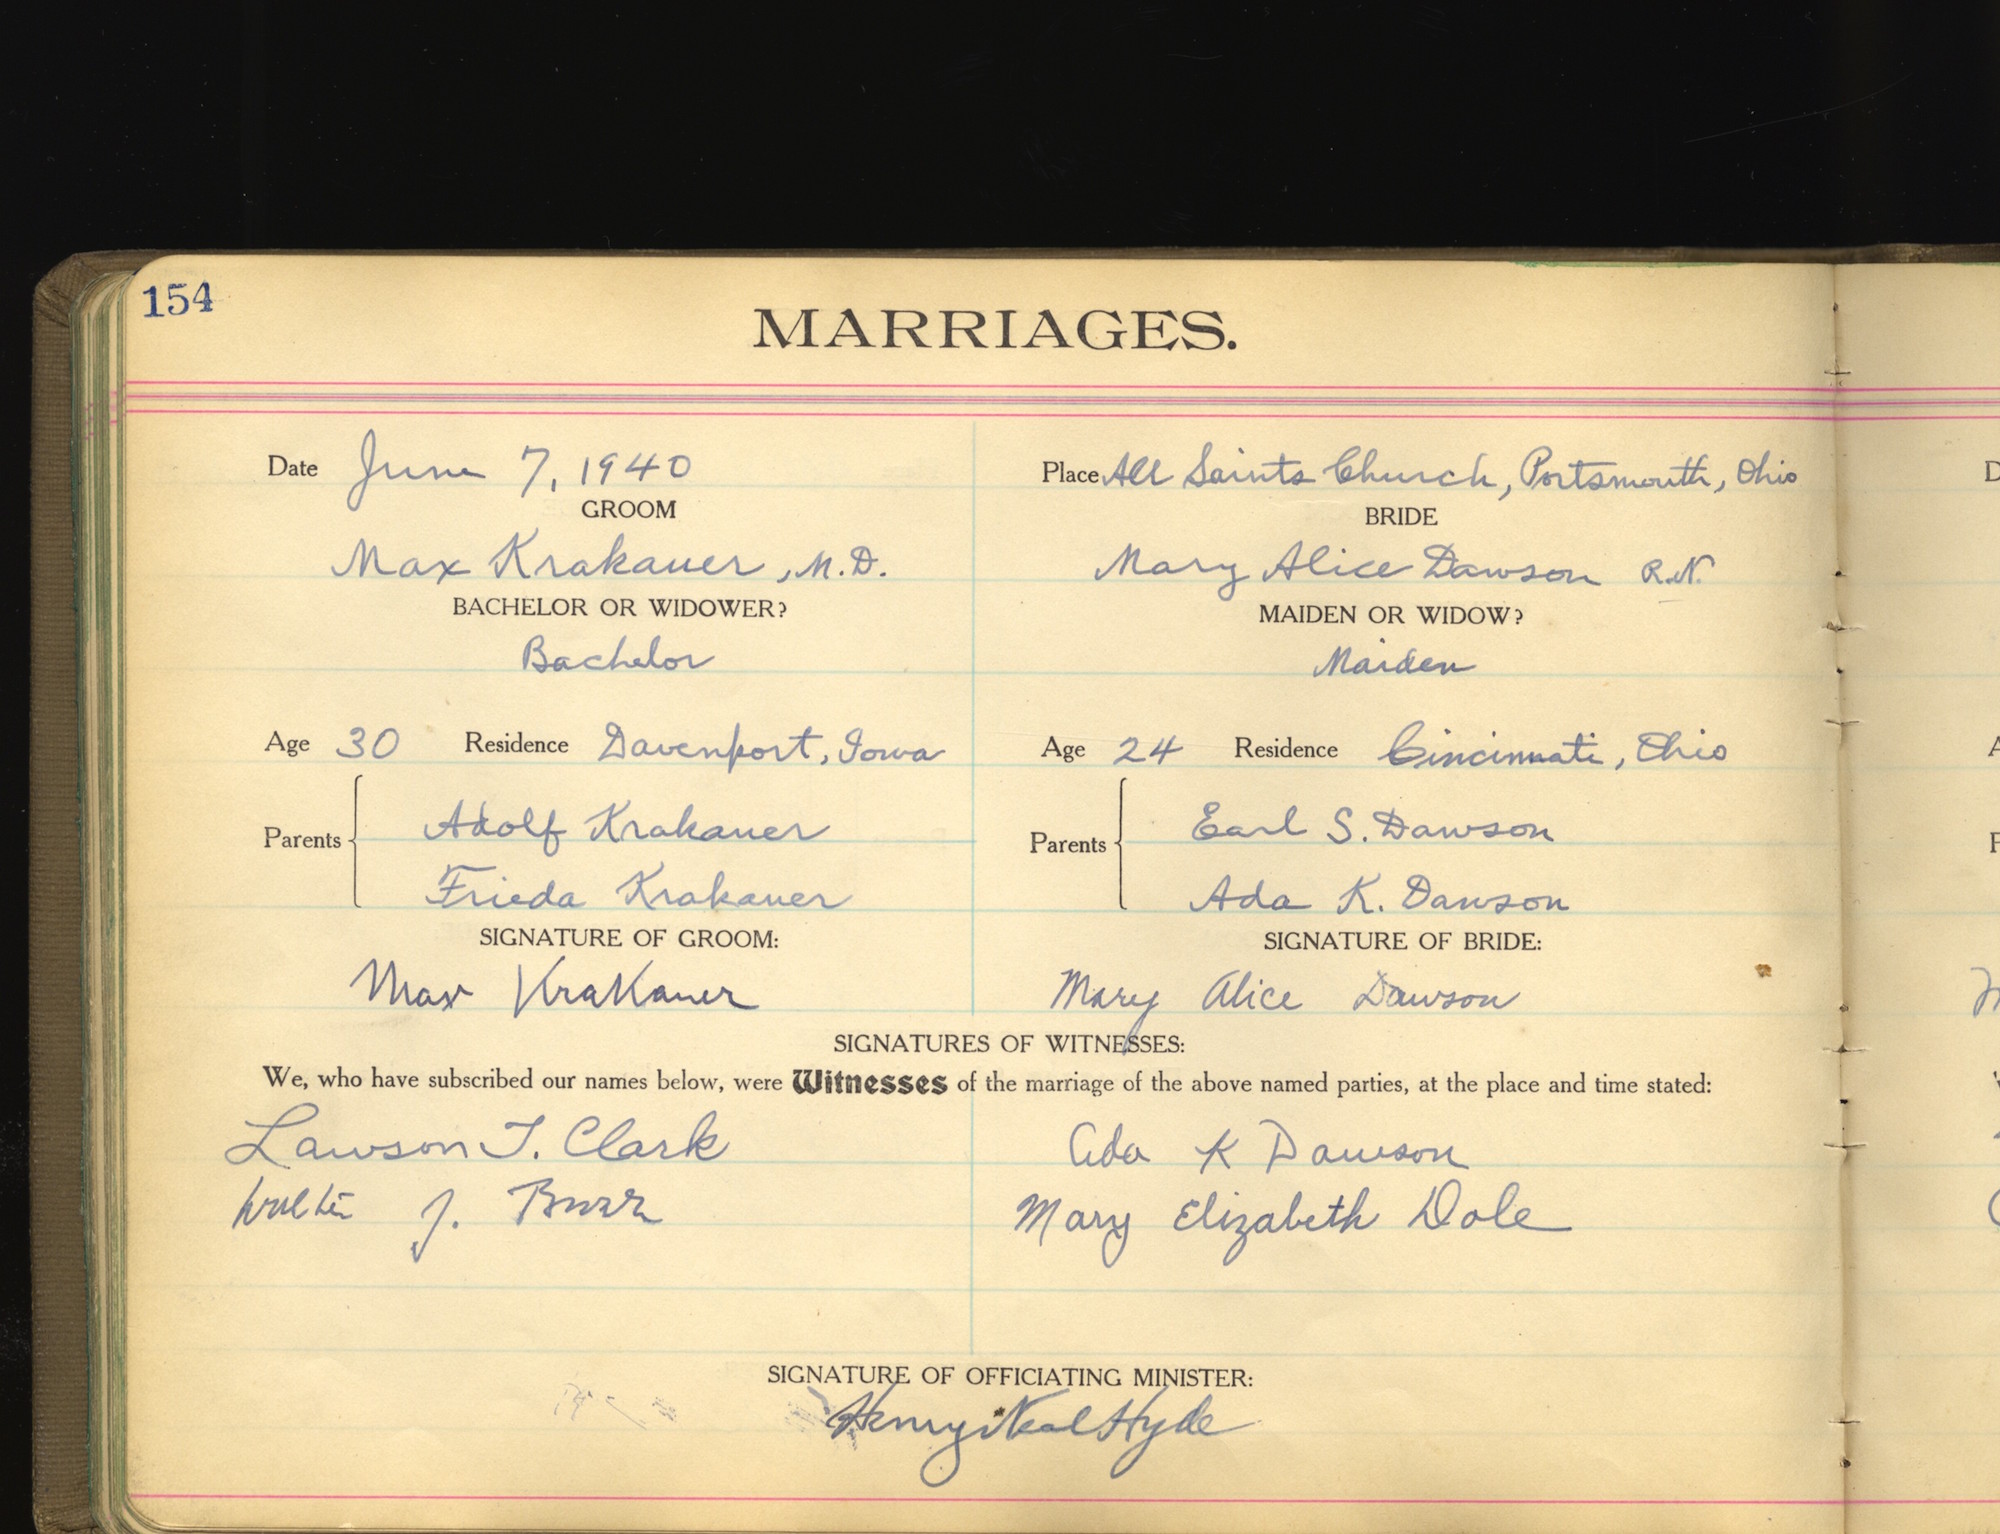 154
MARRIAGES.
Date June 7, 1940
Place All Saints Church, Portsmouth, Ohio
GROOM
BRIDE
Max Krakauer, M.D.
Mary Alice Dawson R.N.
BACHELOR OR WIDOWER?
MAIDEN OR WIDOW?
Bachelor
Maiden
Age 30 Residence Davenport, Iowa
Age 24 Residence Cincinnati, Ohio
Parents
Adolf Krakauer
Frieda Krakauer
Parents
Earl S. Dawson
Ada K. Dawson
SIGNATURE OF GROOM:
SIGNATURE OF BRIDE:
Max Krakauer
Mary Alice Dawson
SIGNATURES OF WITNESSES:
We, who have subscribed our names below, were Witnesses of the marriage of the above named parties, at the place and time stated:
Lawson T. Clark
Ada K Dawson
Walter J. Burr
Mary Elizabeth Dole
SIGNATURE OF OFFICIATING MINISTER:
Henry Neal Hyde